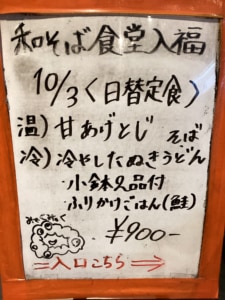 和そば食堂入福
10/3〈日替定食〉
温)甘あげとじ そば
冷)冷やしたぬきうどん
・小鉢2品付
・ふりかけごはん(鮭)
¥900-
=入口こちら⇒